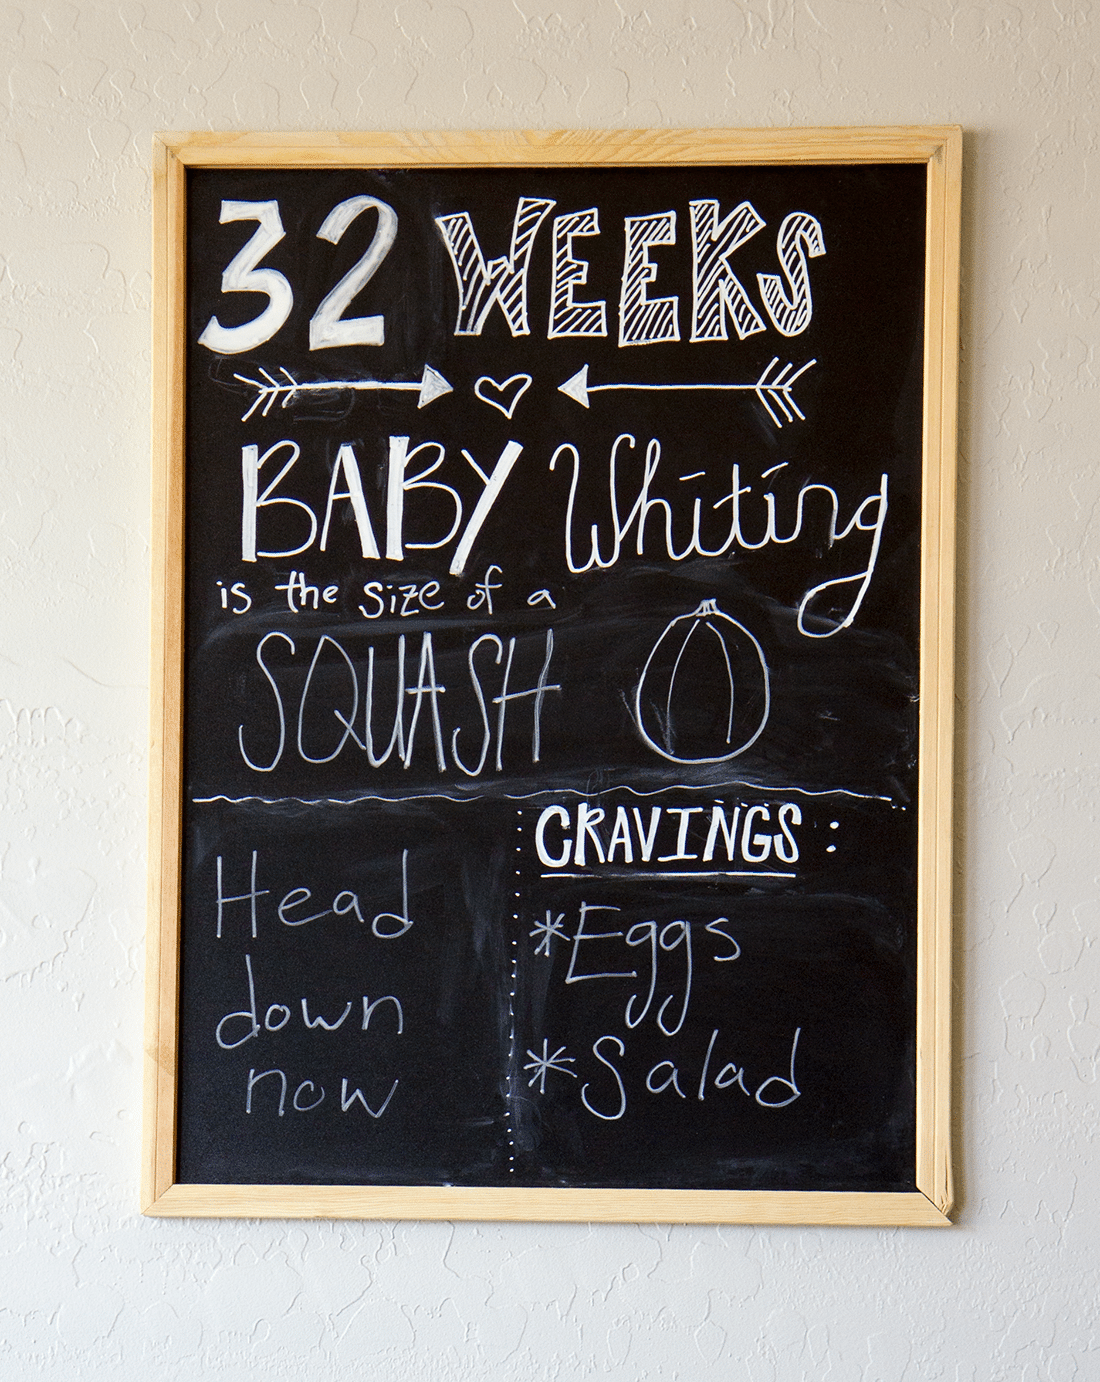 32 WEEKS
BABY Whiting
is the size of a
SQUASH
Head
down
now
CRAVINGS:
*Eggs
*Salad